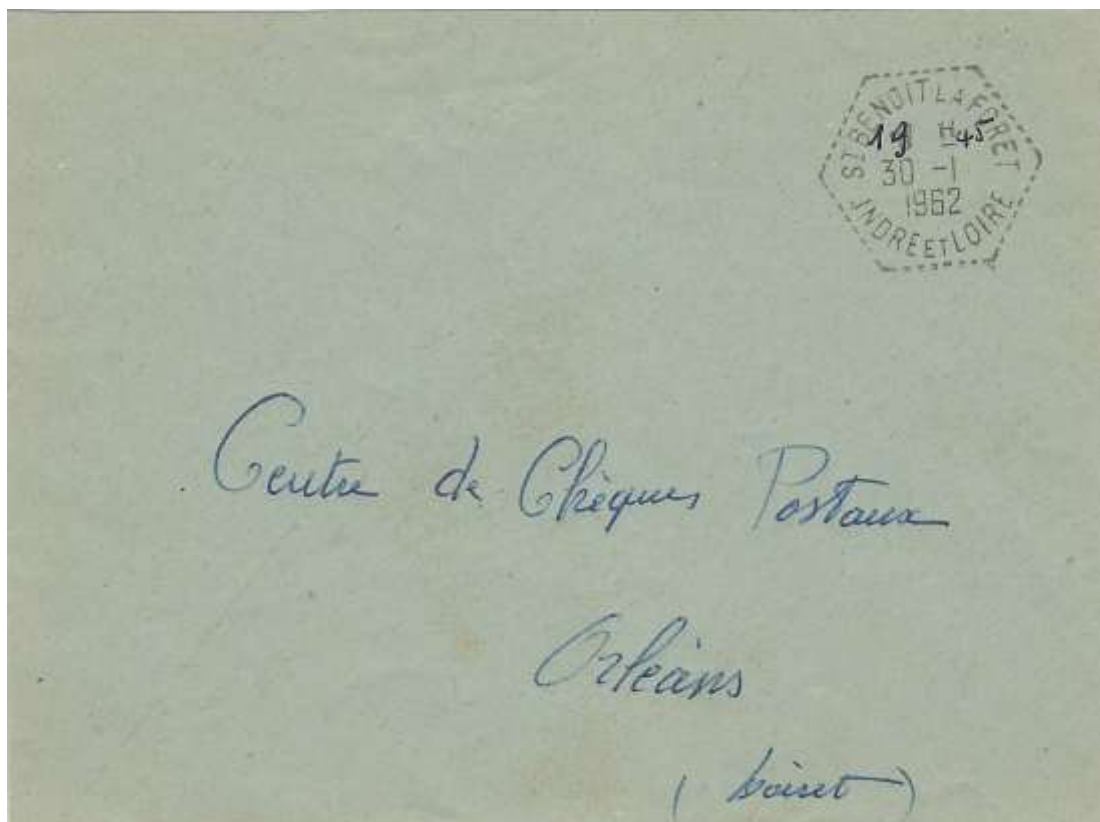 ST BENOIT LA FORET
19 H 45
30 -1
1962
INDRE ET LOIRE
Centre de Chèques Postaux
Orléans
(Loiret)